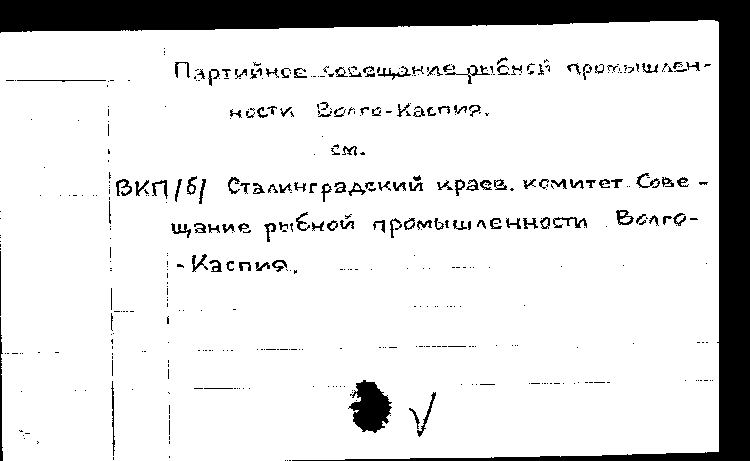 Партийное совещание рыбной промышлен-
ности Волго-Каспия.
см.
ВКП/б/ Сталинградский краев. комитет. Сове-
щание рыбной промышленности Волго-
-Каспия.